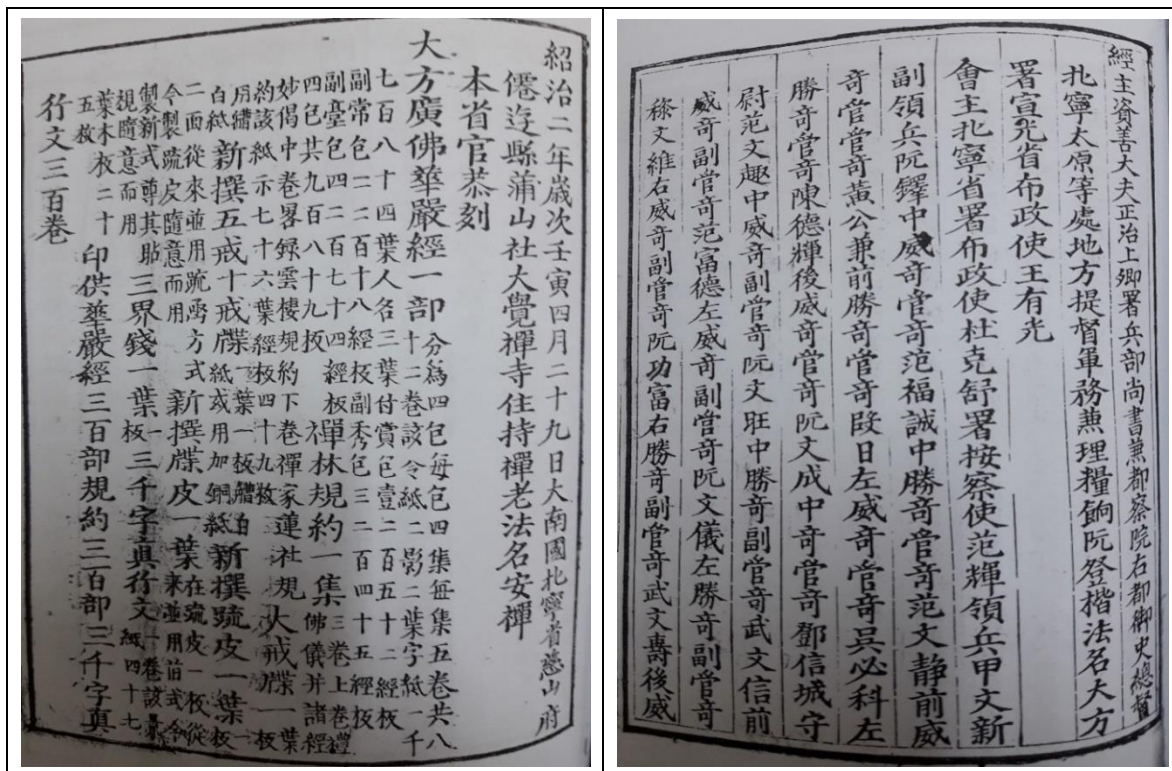 紹治二年歲次壬寅四月二十九日大南國北寧省慈山府
僊逰縣蒲山社大覺禪寺住持禪老法名安禪
本省官恭刻
大方廣佛華嚴經一部分爲四包每包四集每集五卷共八
十二卷該令紙二影二葉字紙一千
七百八十四葉人名三葉付賞包壹二百五十二經板
副常包二二百十八經板副秀包三二百四十五經板
副臺包四二百七十四經板
四包共九百八十九板禪林規約一集三卷上卷禮
佛儀并諸經
妙偈中卷畧録雲棲規約下卷禪家蓮社規
約該紙示七十六葉經板四十九板大戒牒一葉一板
用繡白紙新撰五戒十戒牒一葉一板
白紙或用加銅紙新撰疏皮一葉一板
二面從來並用疏方式
今製疏皮隨意而用新撰牒皮一葉在疏皮一板從
來並用苗式今
製新式尊其貼
規隨意而用三界錢一葉一板三千字真行文一卷該
紙四十七
葉木板二十
五板印供華嚴經三百部規約三百部三千字真
行文三百卷
經主資善大夫正治上卿署兵部尚書兼都察院右都御史總督
北寧太原等處地方提督軍務兼理糧餉阮登楷法名大方
署宣光省布政使王有光
會主北寧省署布政使杜克舒署按察使范輝領兵甲文新
副領兵阮鐸中威奇管奇范福誠中勝奇管奇范文静前威
奇管管奇黃公兼前勝奇管奇段日左威奇管奇吳必科左
勝奇管奇陳德輝後威奇管奇阮文成中奇管奇鄧信城守
尉范文趣中威奇副管奇阮文旺中勝奇副管奇武文信前
威奇副管奇范富德左威奇副管奇阮文儀左勝奇副管奇
文維右威奇副管奇阮功富右勝奇副管奇武文壽後威